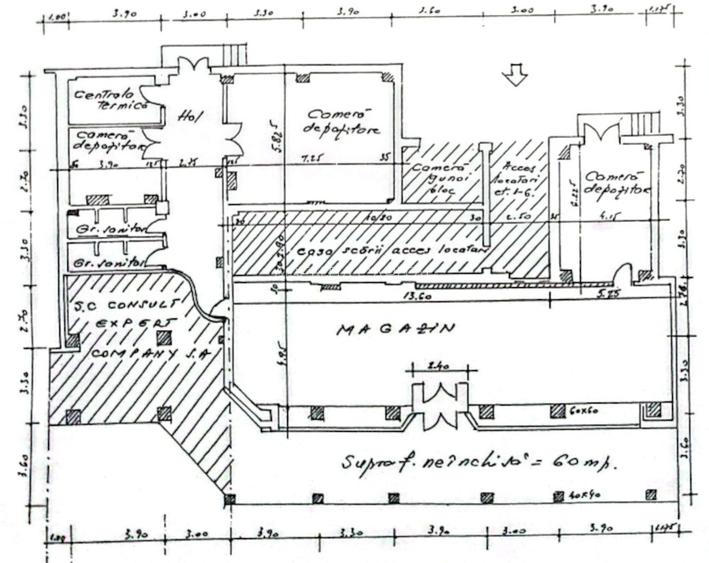 1.00 3.90 3.00 3.30 3.90 3.60 3.00 3.90 1.75
Centrala
Termică
Hol
Cameră
depozitare
Cameră
depozitare
3.90
2.75
5.825
7.25
35
Cameră
gunoi
bloc
Acces
locatari
et. 1-6.
Cameră
depozitare
4.15
Gr. sanitar
Gr. sanitar
10.80
30
2.50
casa scării acces locatari
13.60
5.25
S.C CONSULT
EXPERT
COMPANY S.A
MAGAZIN
4.95
2.40
60x60
Supraf. neînchisă = 60 mp.
40x40
3.30
2.70
3.30
2.70
3.30
3.60
3.30
2.70
3.30
2.70
3.30
3.60
1.00 3.90 3.00 3.90 3.30 3.90 3.00 3.90 1.75